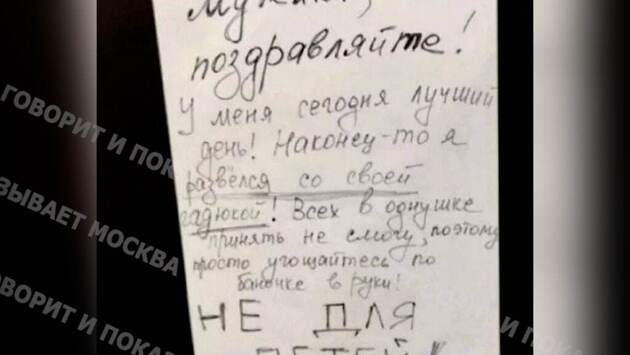 поздравляйте!
У меня сегодня лучший
день! Наконец-то я
развёлся со своей
гадюкой! Всех в однушке
принять не смогу, поэтому
просто угощайтесь по
баночке в руки!
НЕ ДЛЯ
ГОВОРИТ И ПОК
ЗЫВАЕТ МОСКВА
ОВОРИТ И ПОКАЗ
И ПОКА